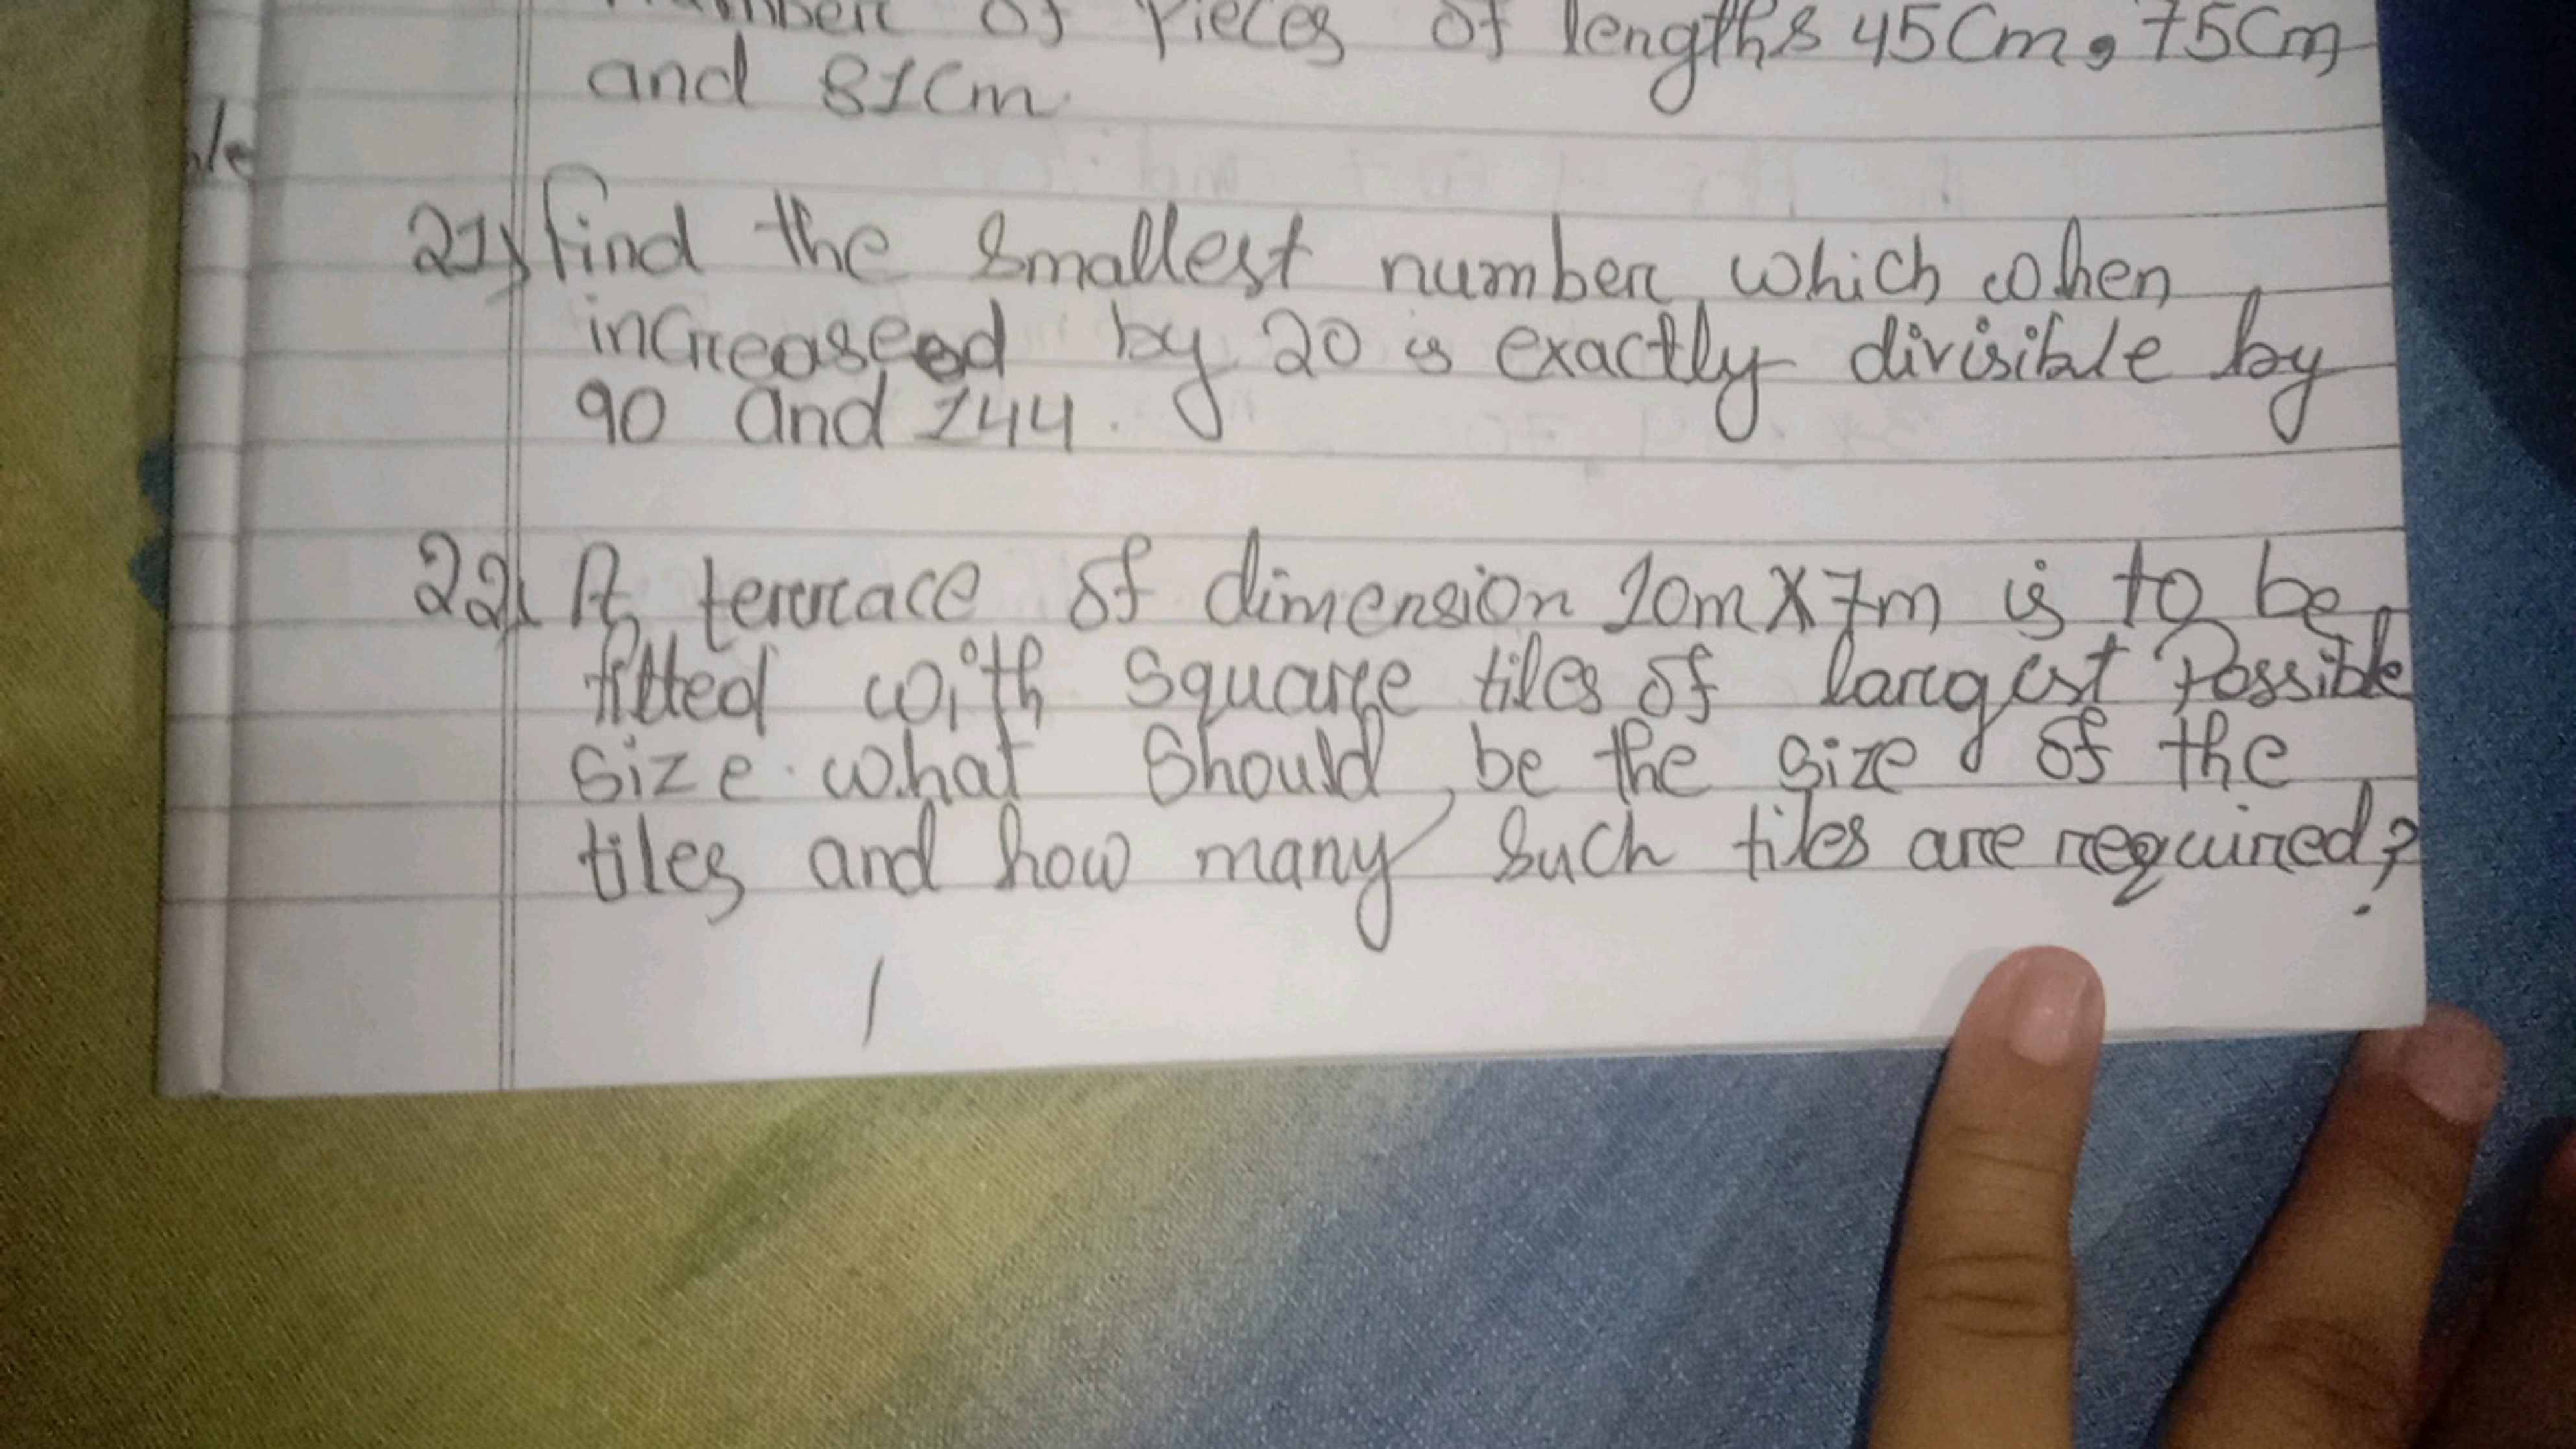 number of Pieces of lengths 45Cm, 75Cm
and 81Cm
21) find the smallest number which when
increaseed by 20 is exactly divisible by
90 and 144.
22. A terrace of dimension 10m X 7m is to be
fitted with square tiles of largest Possible
size. what should be the size of the
tiles and how many such tiles are required?